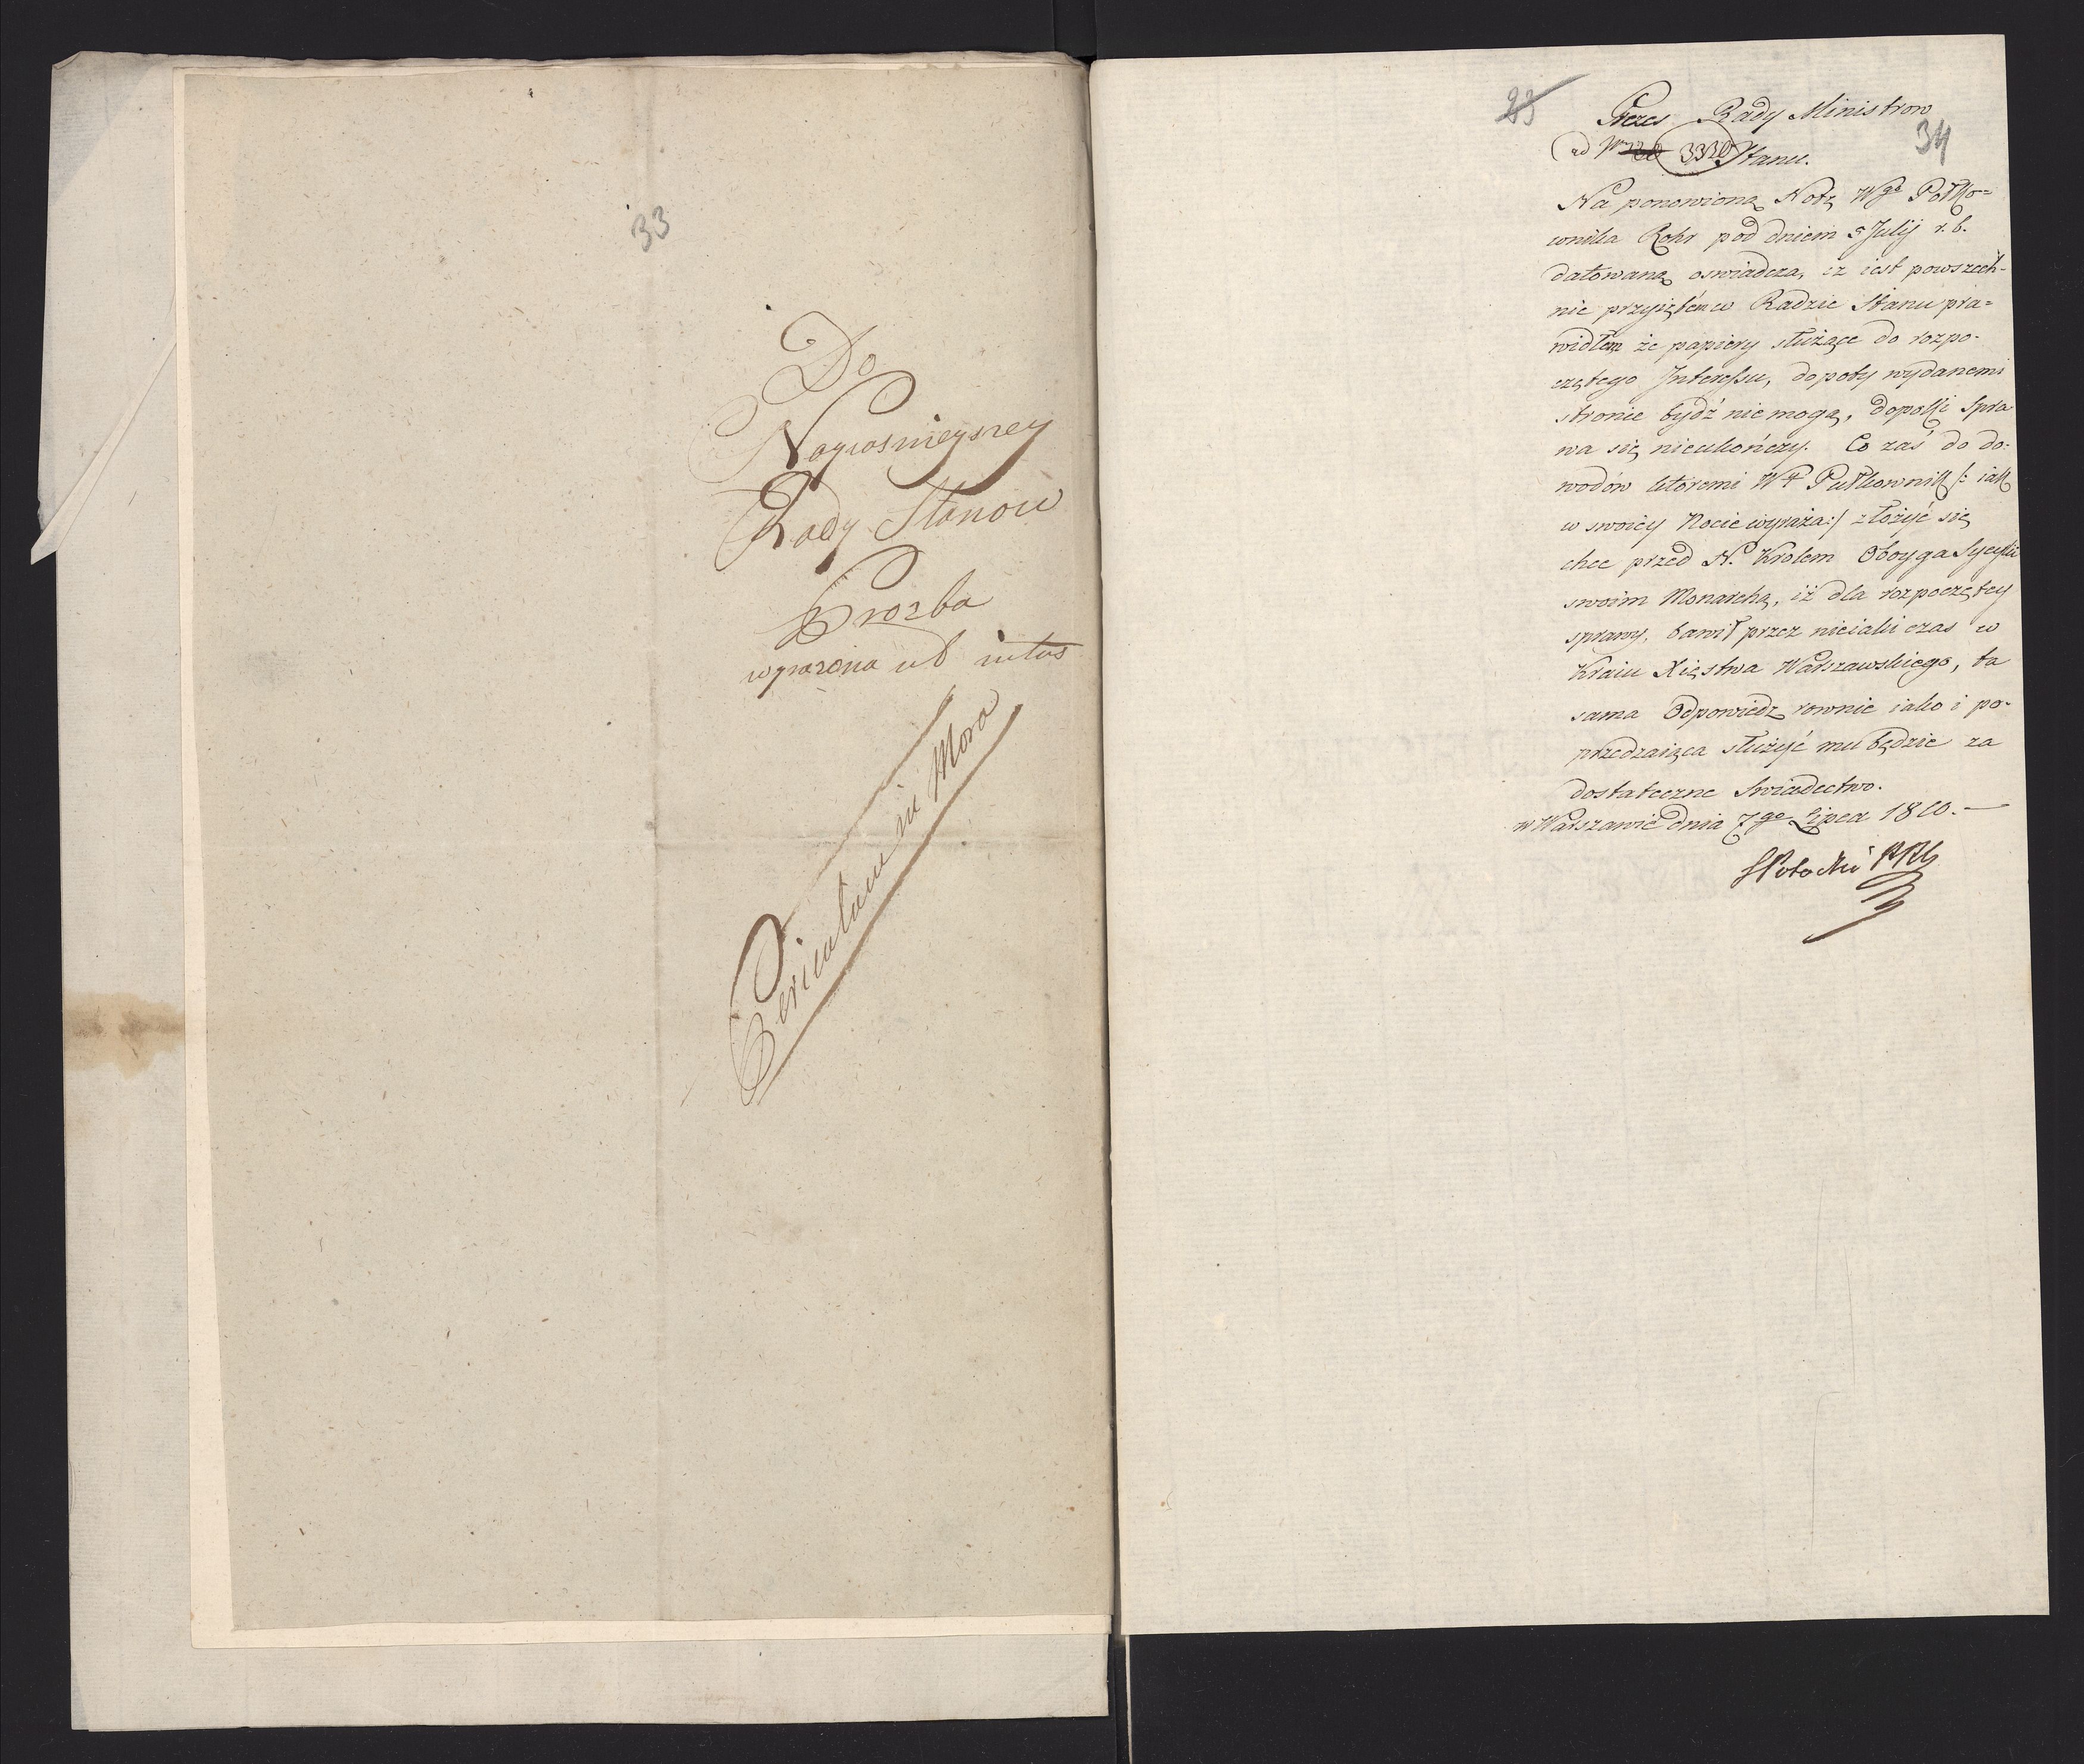 33
Do
Nayiasnieyszey
Rady Stanow
Prozba
wyrazona ut intus
Periculum in Mora
23
34
Prezes Rady Ministrow
ad Nrm 3320 Stanu.
Na ponowioną Notę Wgo Połko=
wnika Rohr pod dniem 5 Julij r. b.
datowaną oswiadcza, iz iest powszech-
nie przyiętem w Radzie Stanu pra=
widłem że papiery służące do rozpo-
czętego Interessu, dopoty wydanemi
stronie bydź nie mogą, dopóki Spra
wa się nieukończy. Co zaś do do-
wodów ktoremi WP Pułkownik /: iak
w swoiey Nocie wyraża:/ złożyć się
chce przed N. Krolem Oboyga Sycylii
swoim Monarchą, iż dla rozpoczętey
sprawy, bawił przez nieiaki czas w
Kraiu Xięstwa Warszawskiego, ta
sama Odpowiedz rownie iako i po-
przedzaiąca służyć mu będzie za
dostateczne Swiadectwo.
w Warszawie dnia 7go Lipca 1810. —
S Potocki PRM